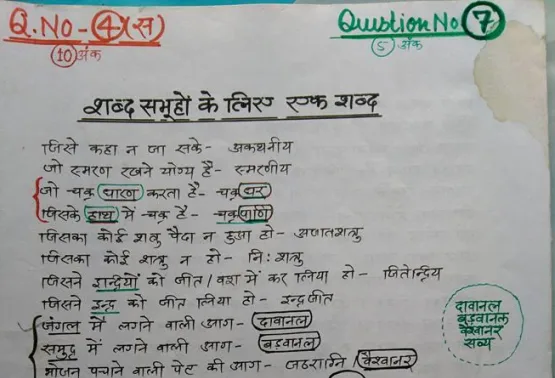 Q.NO - 4 (स)
10 अंक
Question No 7
5 अंक
शब्द समूहों के लिए एक शब्द
जिसे कहा न जा सके - अकथनीय
जो स्मरण रखने योग्य है - स्मरणीय
जो चक्र धारण करता है - चक्रधर
जिसके हाथ में चक्र है - चक्रपाणि
जिसका कोई शत्रु पैदा न हुआ हो - अजातशत्रु
जिसका कोई शत्रु न हो - नि:शत्रु
जिसने इन्द्रियों को जीत / वश में कर लिया हो - जितेन्द्रिय
जिसने इन्द्र को जीत लिया हो - इन्द्रजीत
जंगल में लगने वाली आग - दावानल
समुद्र में लगने वाली आग - बड़वानल
भोजन पचाने वाली पेट की आग - जठराग्नि / वैश्वानर
दावानल
बड़वानल
वैश्वानर
सव्य